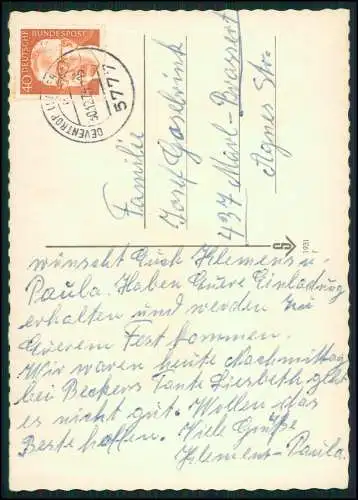 DEUTSCHE BUNDESPOST
40
5777
30.12.72
DEVENTROP
Familie
Josef Gosebrink
437 Marl-Brassert
Agnes Str.
1931
wünscht Euch Klemens u.
Paula. Haben Eure Einladung
erhalten und werden zu
Eurem Fest kommen.
Wir waren heute Nachmittag
bei Beckers Tante Liesbeth geht
es nicht gut. Wollen das
Beste hoffen. Viele Grüße
Klemens-Paula.